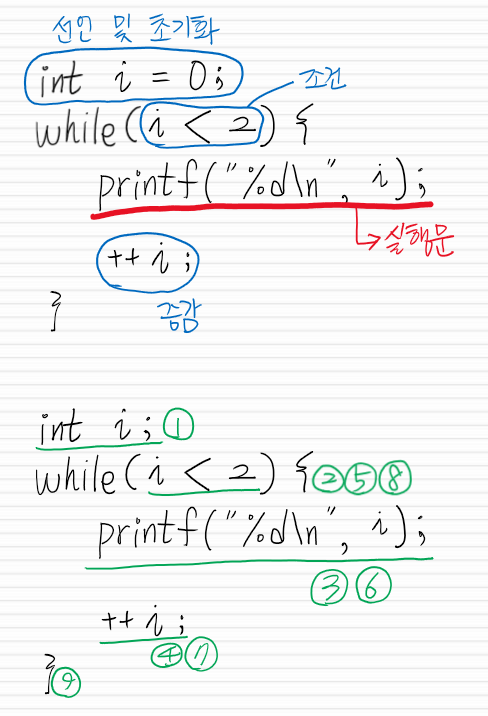 선언 및 초기화
int i = 0;
조건
while(i < 2) {
printf("%d\n", i);
실행문
++i;
}
증감
int i; ①
while(i < 2) { ②⑤⑧
printf("%d\n", i);
③⑥
++i;
④⑦
} ⑨